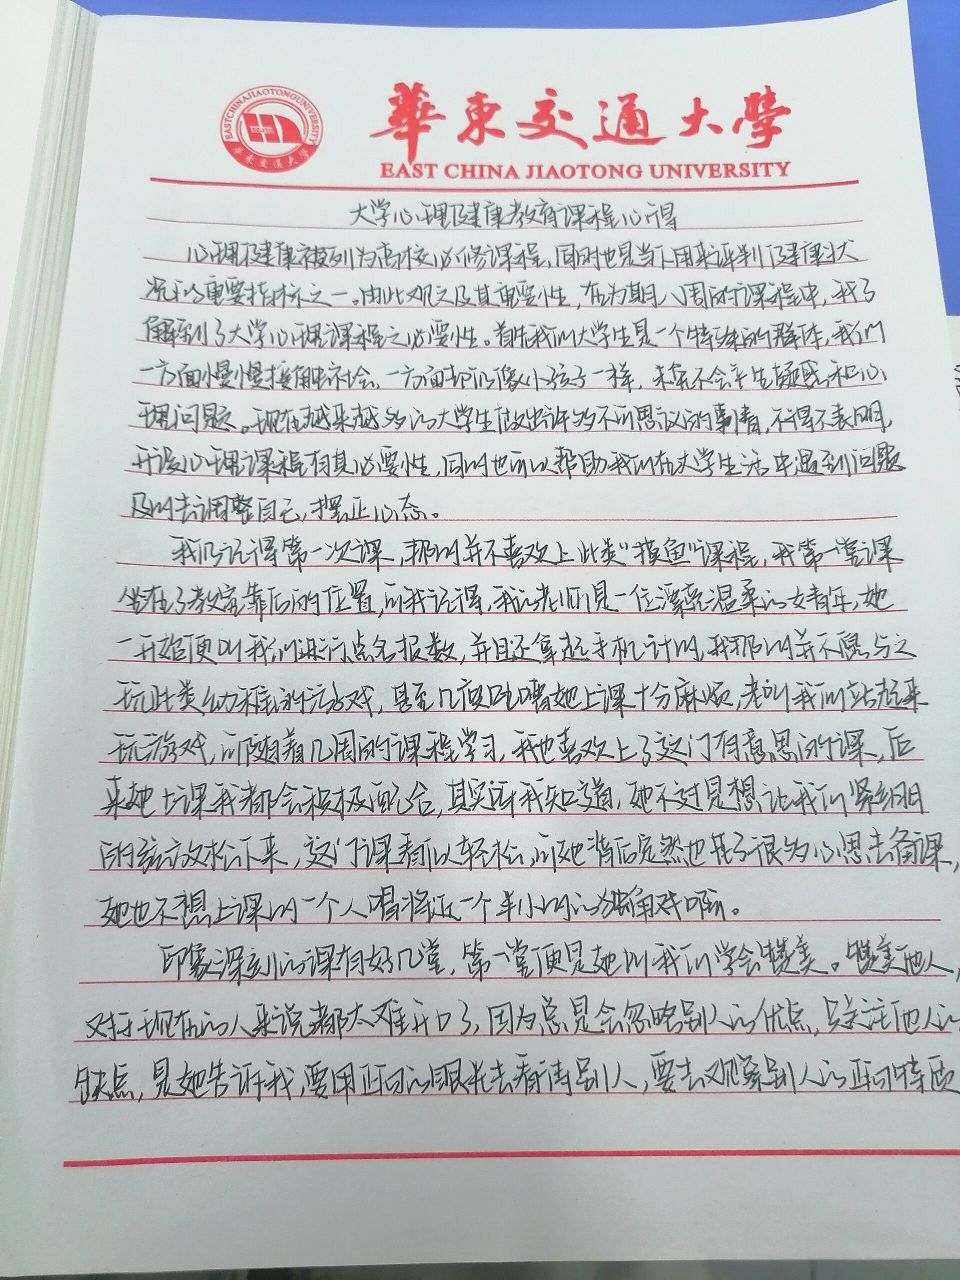 EASTCHINAJIAOTONGUNIVERSITY
華東交通大學
華東交通大學
EAST CHINA JIAOTONG UNIVERSITY
大学心理健康教育课程心得
心理健康被列为高校必修课程，同时也是当下用来评判健康状
况的重要指标之一。由此观之及其重要性，在为期八周的课程中，我了
解到了大学心理课程之必要性。首先我们大学生是一个特殊的群体，我们
一方面慢慢接触社会，一方面却仍像小孩子一样，未条不会产生疑惑和心
理问题。现在越来越多的大学生做出许多不可思议的事情，不得不表明，
开设心理课程有其必要性，同时也可以帮助我们在大学生活中遇到问题
及时去调整自己，摆正心态。
我仍记得第一次课，那时并不喜欢上此类“摸鱼”课程，我第一堂课
坐在了教室靠后的位置，可我记得，我的老师是一位漂亮温柔的女青年，她
一开始便叫我们进行点名报数，并且还拿起手机计时，我那时并不愿与之
玩此类幼稚的游戏，甚至几度吐嘈她上课十分麻烦，老叫我们站起来
玩游戏，可随着几周的课程学习，我也喜欢上了这门有意思的课，后
来她上课我都会积极配合，其实我知道，她不过是想让我们紧绷
的弦放松下来，这门课看似轻松，可她背后定然也花了很多心思去备课，
她也不想上课时一个人唱将近一个半小时的独角戏啊。
印象深刻的课有好几堂，第一堂便是她叫我们学会赞美。赞美他人，
对于现在的人来说都太难开口了，因为总是会忽略别人的优点，只关注他人的
缺点，是她告诉我，要用正向的眼光去看待别人，要去观察别人的正向特质